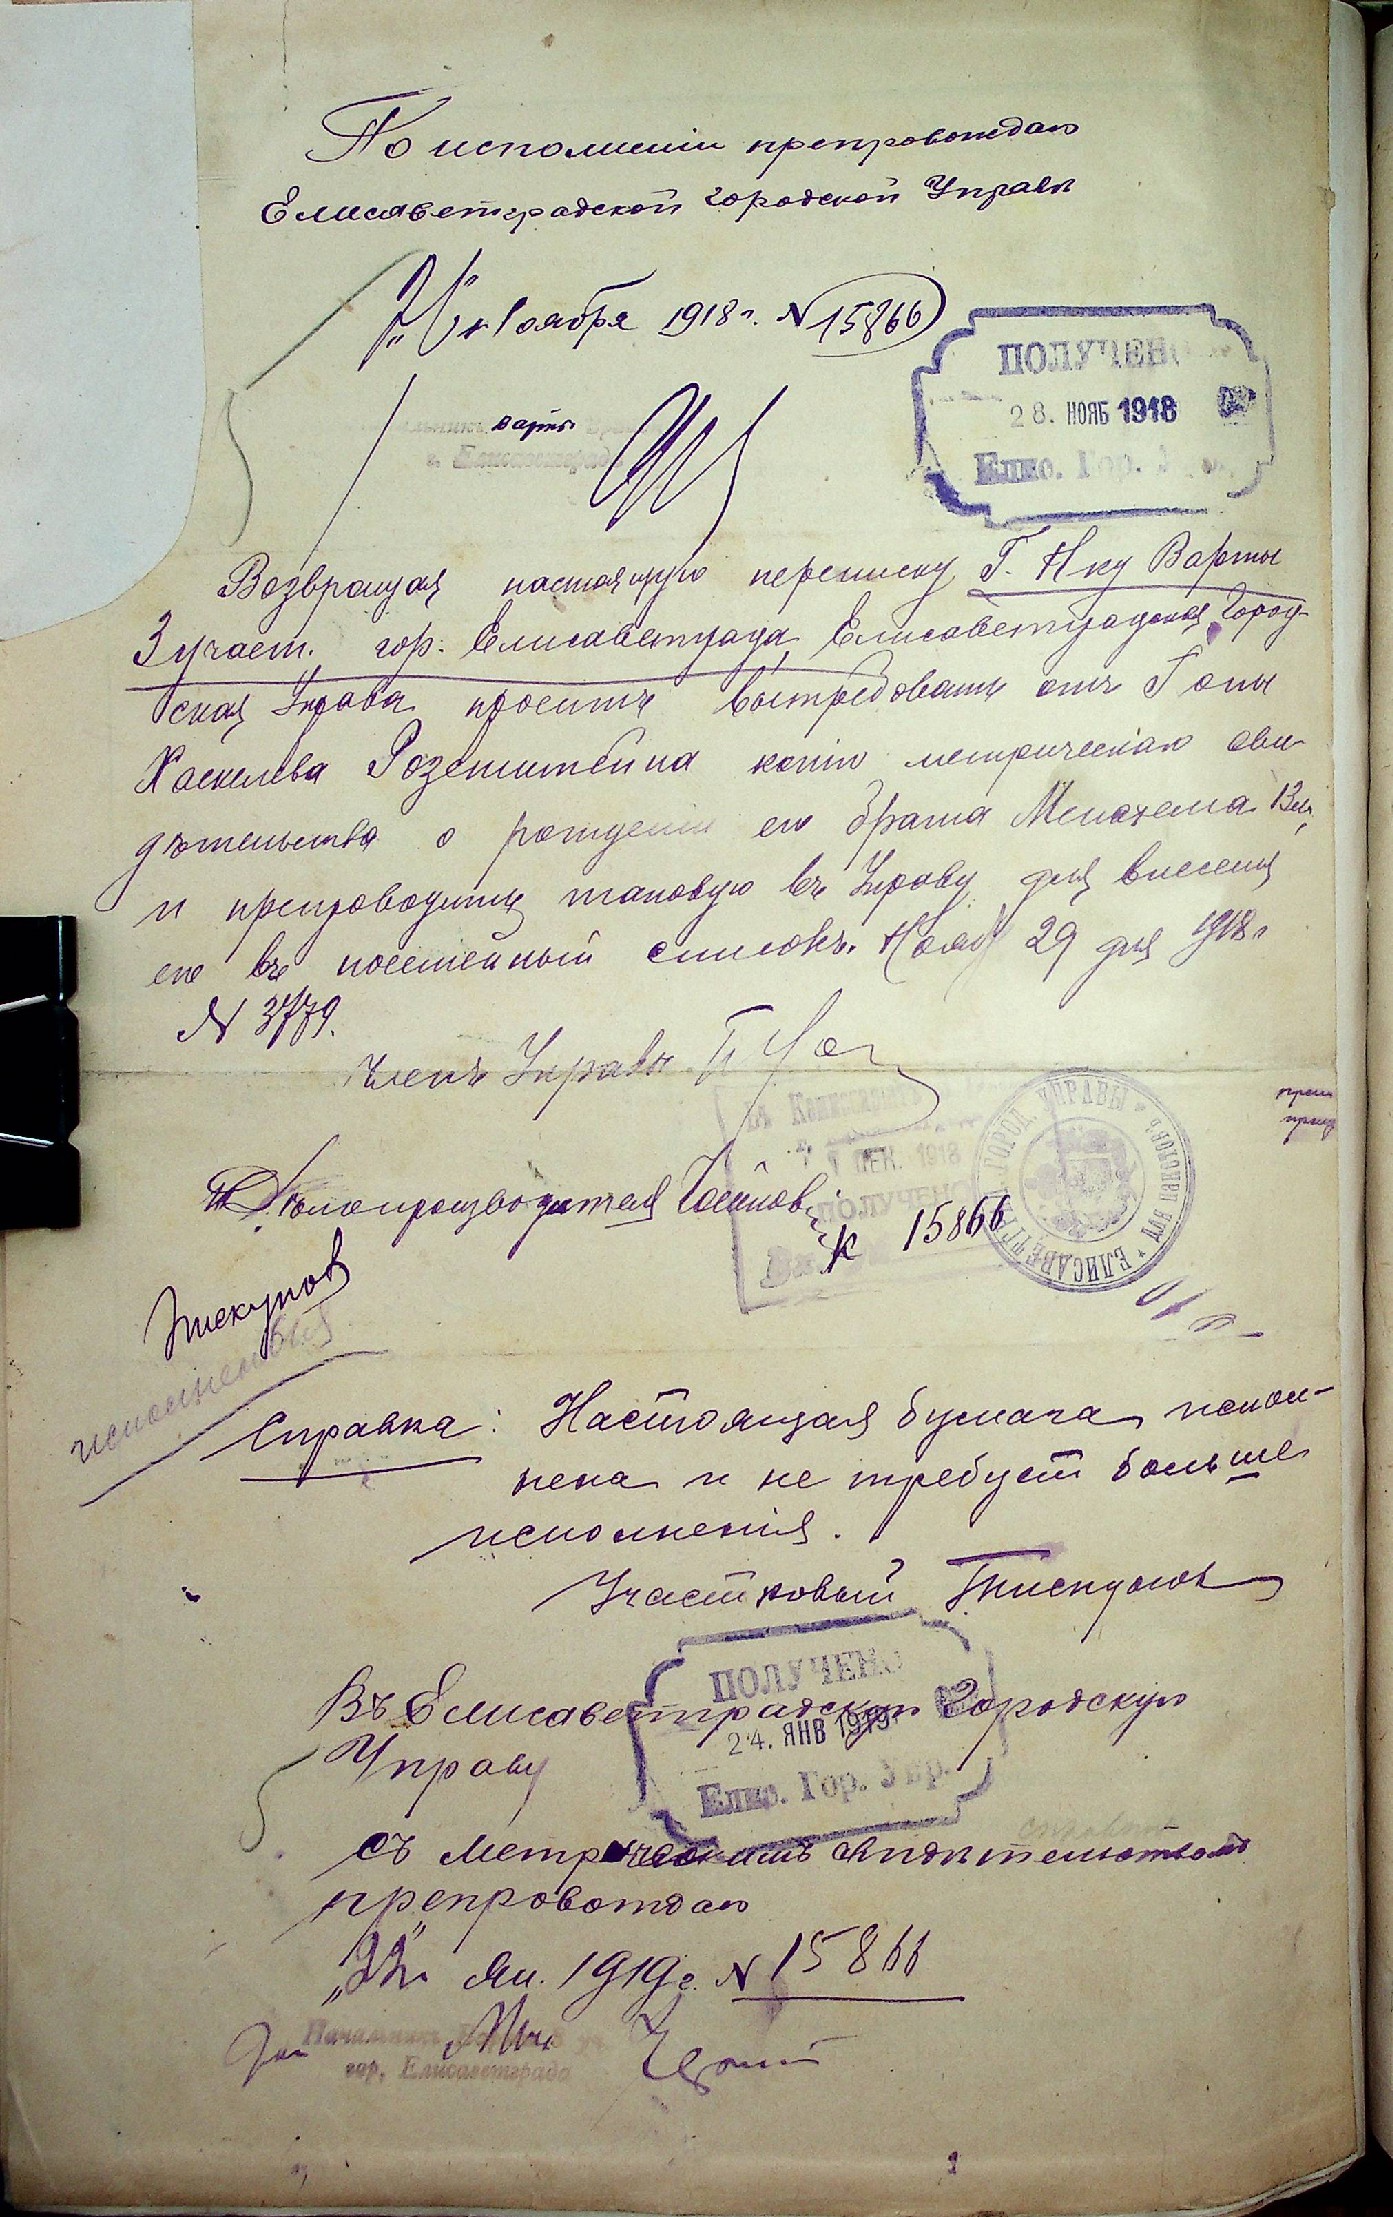 По исполненіи препровождаю
Елисаветградской городской Управѣ
Ноября 1918 г. № 15866
ПОЛУЧЕНО
28. НОЯБ 1918
Елис. Гор.
Варты
г. Елисаветграда
Возвращая настоящую переписку Г. Н-ку Варты
3 участ. гор. Елисаветграда, Елисаветградская Город-
ская Управа проситъ вытребовать отъ
Хаскелева Розенштейна копію метрическаго сви-
дѣтельства о рожденіи его брата Менахема
и препроводить таковую въ Управу для внесенія
его въ посемейный списокъ. Нояб 29 дня 1918 г
№ 3779.
Членъ Управы
1 ДЕК. 1918
ПОЛУЧЕНО
ГОРОД. УПРАВЫ
Дѣлопроизводителя
К 15866
Справка: Настоящая бумага испол-
нена и не требуетъ больше
исполненія.
Участковый
ПОЛУЧЕНО
24. ЯНВ 1919
Елис. Гор. Упр.
Въ Елисаветградскую Городскую
Управу
съ метрическимъ свидѣтельствомъ
препровождаю
„22" Ян. 1919 г. № 15866
Начальникъ
гор. Елисаветграда
За